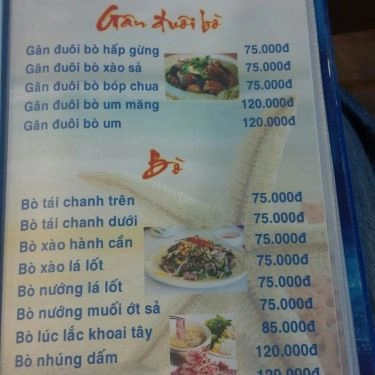 Gân đuôi bò
Gân đuôi bò hấp gừng 75.000đ
Gân đuôi bò xào sả 75.000đ
Gân đuôi bò bóp chua 75.000đ
Gân đuôi bò um măng 120.000đ
Gân đuôi bò um 120.000đ
Bò
Bò tái chanh trên 75.000đ
Bò tái chanh dưới 75.000đ
Bò xào hành cần 75.000đ
Bò xào lá lốt 75.000đ
Bò nướng lá lốt 75.000đ
Bò nướng muối ớt sả 75.000đ
Bò lúc lắc khoai tây 85.000đ
Bò nhúng dấm 120.000đ
120.000đ